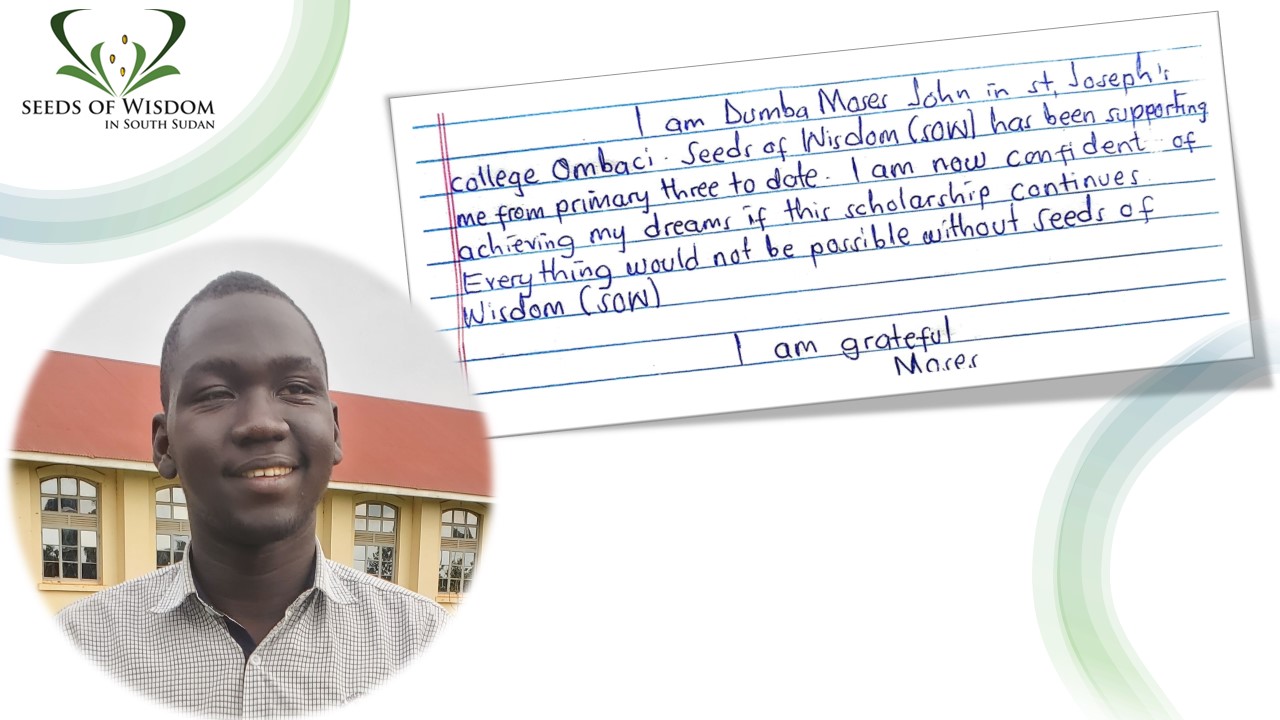 SEEDS OF WISDOM
IN SOUTH SUDAN
I am Dumba Moses John in st. Joseph's
college Ombaci. Seeds of Wisdom (SOW) has been supporting
me from primary three to date. I am now confident of
achieving my dreams if this scholarship continues.
Everything would not be possible without seeds of
Wisdom (SOW)
I am grateful
Moses